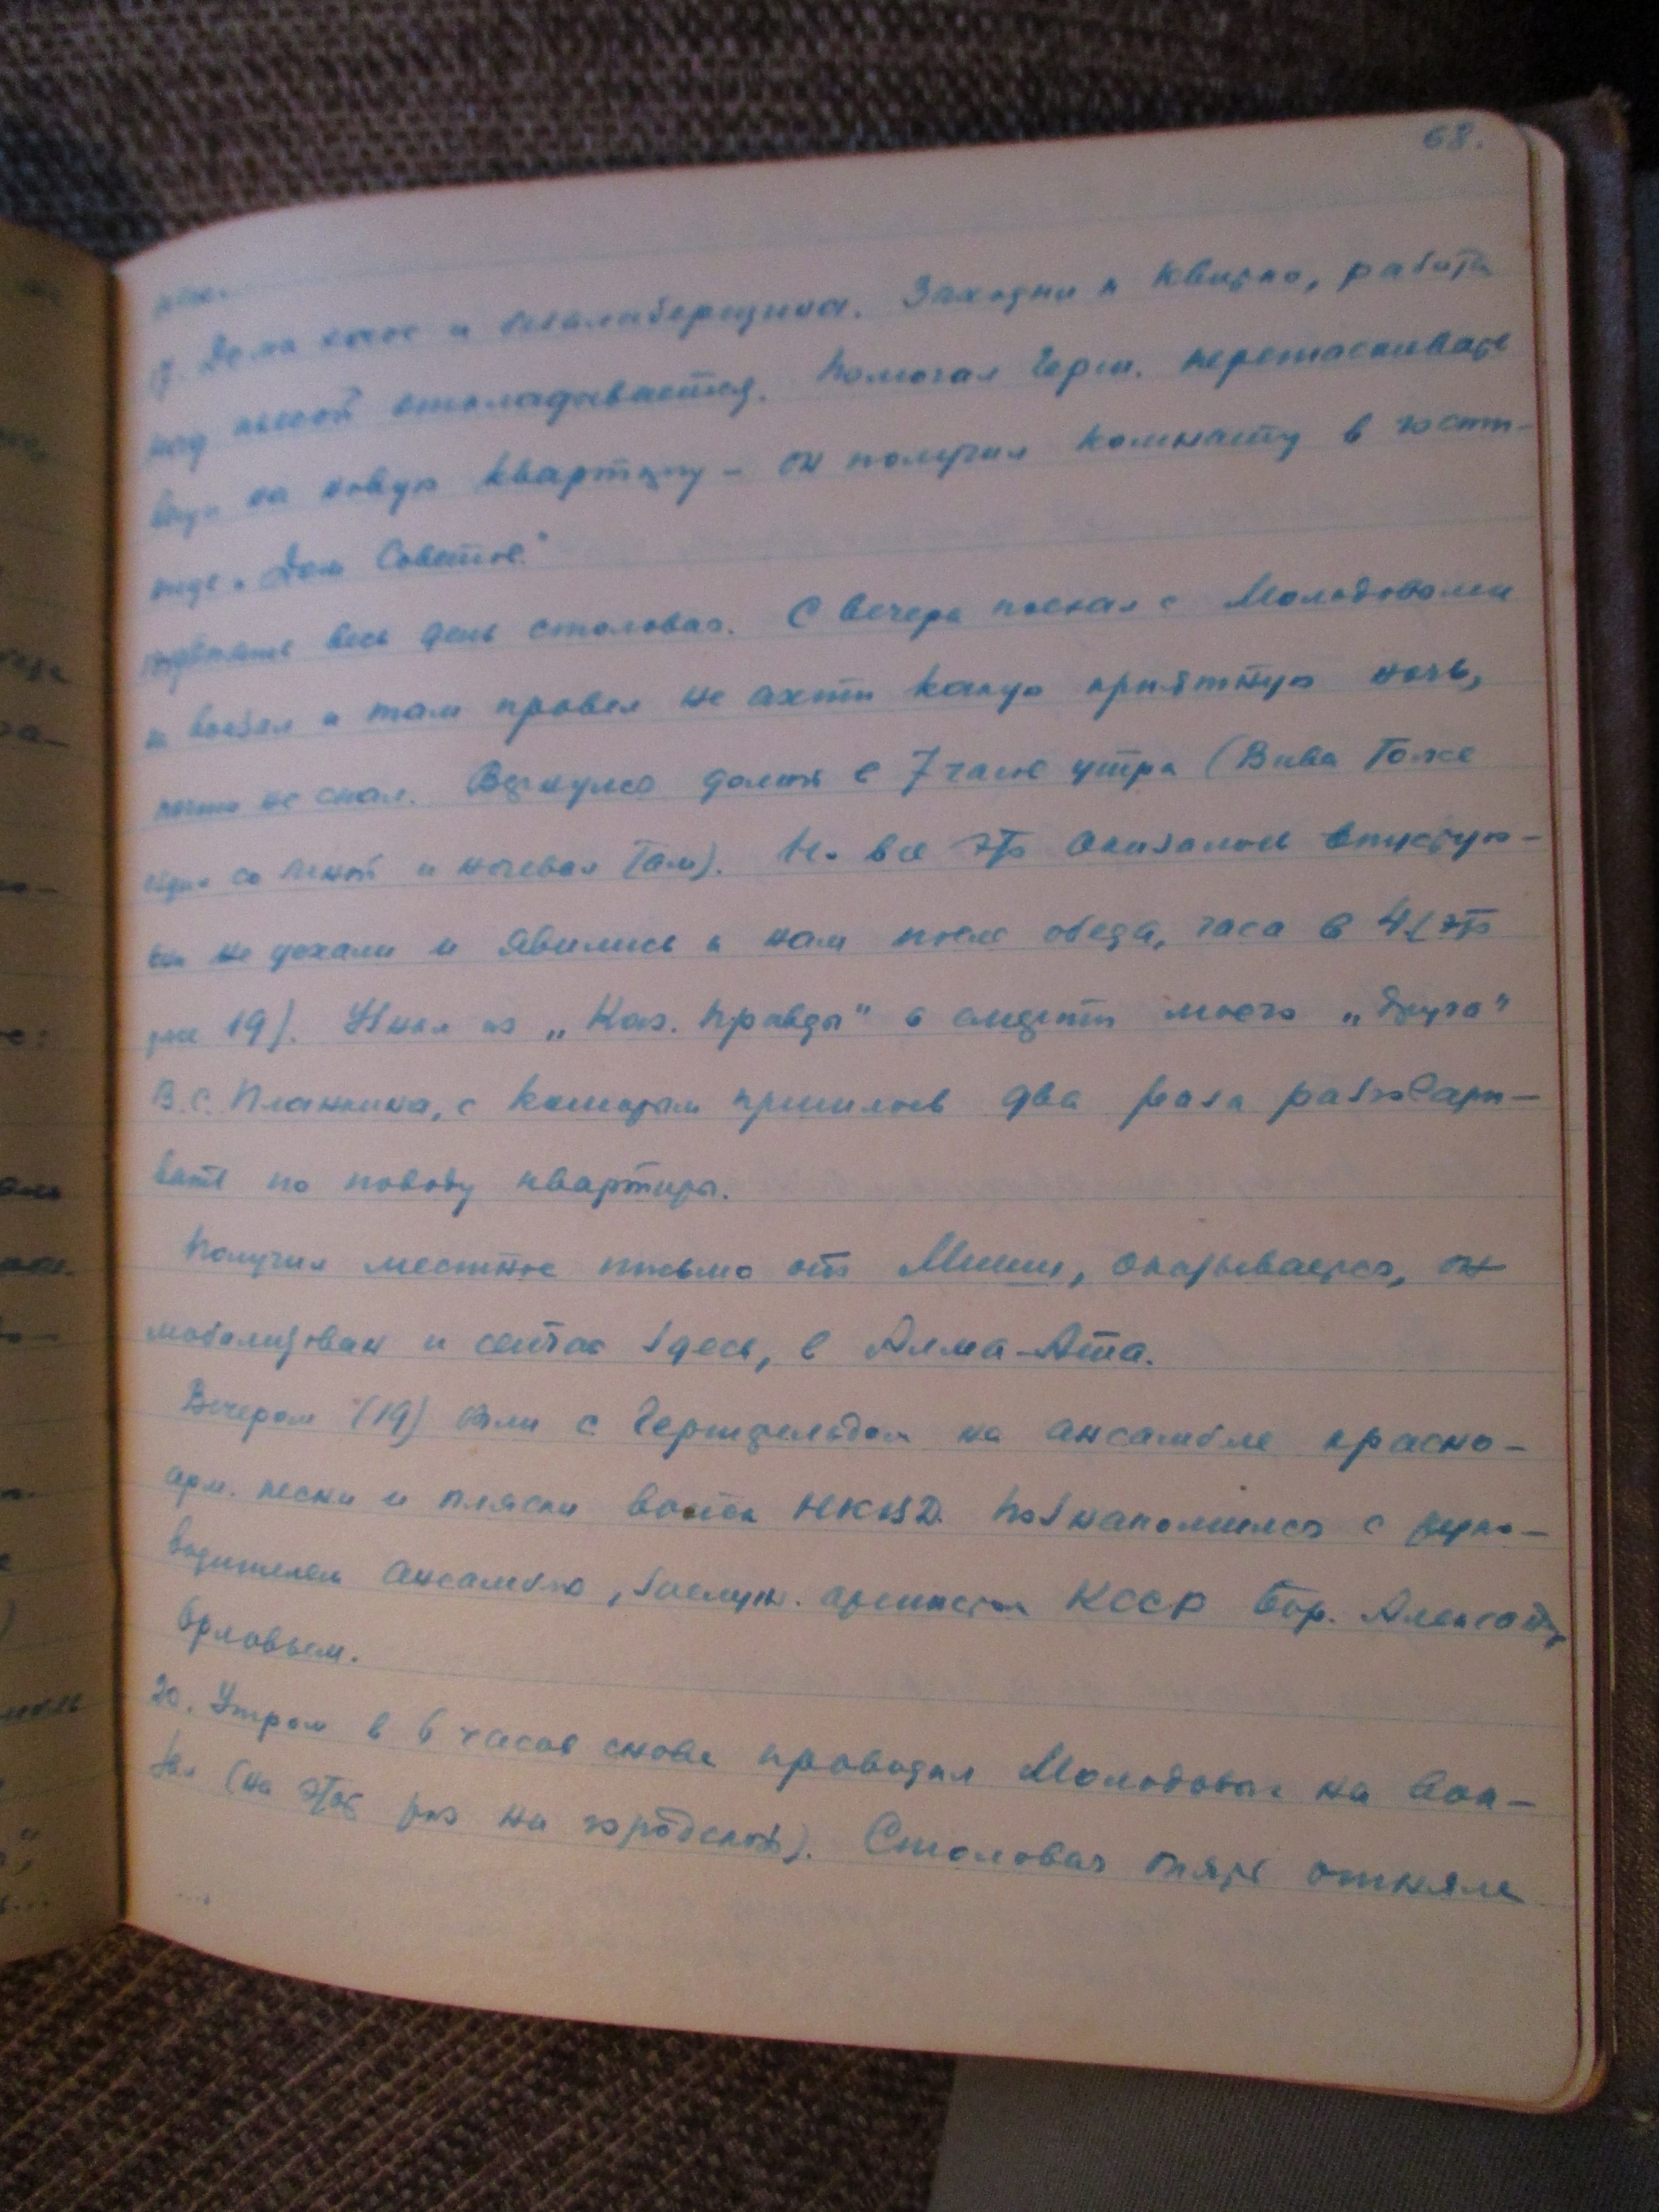 68.
Дома хаос и безалаберщина. Заходил к Квитко, работа
над пьесой откладывается. Помогал Герш. перетаскивать
вещи на новую квартиру – он получил комнату в гости-
нице „Дом Советов".
весь день столовая. С вечера поехал с Молодовыми
на вокзал и там провел не ахти какую приятную ночь,
почти не спал. Вернулся домой в 7 часов утра (Вива тоже
ездил со мной и ночевал там). Но все это оказалось впустую –
они не уехали и явились к нам после обеда, часа в 4 (это
уже 19). Узнал из „Каз. Правды" о смерти моего „друга"
В.С. Планкина, с которым пришлось два раза разговари-
вать по поводу квартиры.
Получил местное письмо от Миши, оказывается, он
мобилизован и сейчас здесь, в Алма-Ата.
Вечером (19) были с Гершфельдом на ансамбле красно-
арм. песни и пляски войск НКВД. Познакомился с руко-
водителем ансамбля, заслуж. артистом КССР Бор. Александр.
Орловым.
20. Утром в 6 часов снова проводил Молодовых на вок-
зал (на этот раз на городской). Столовая опять отняла